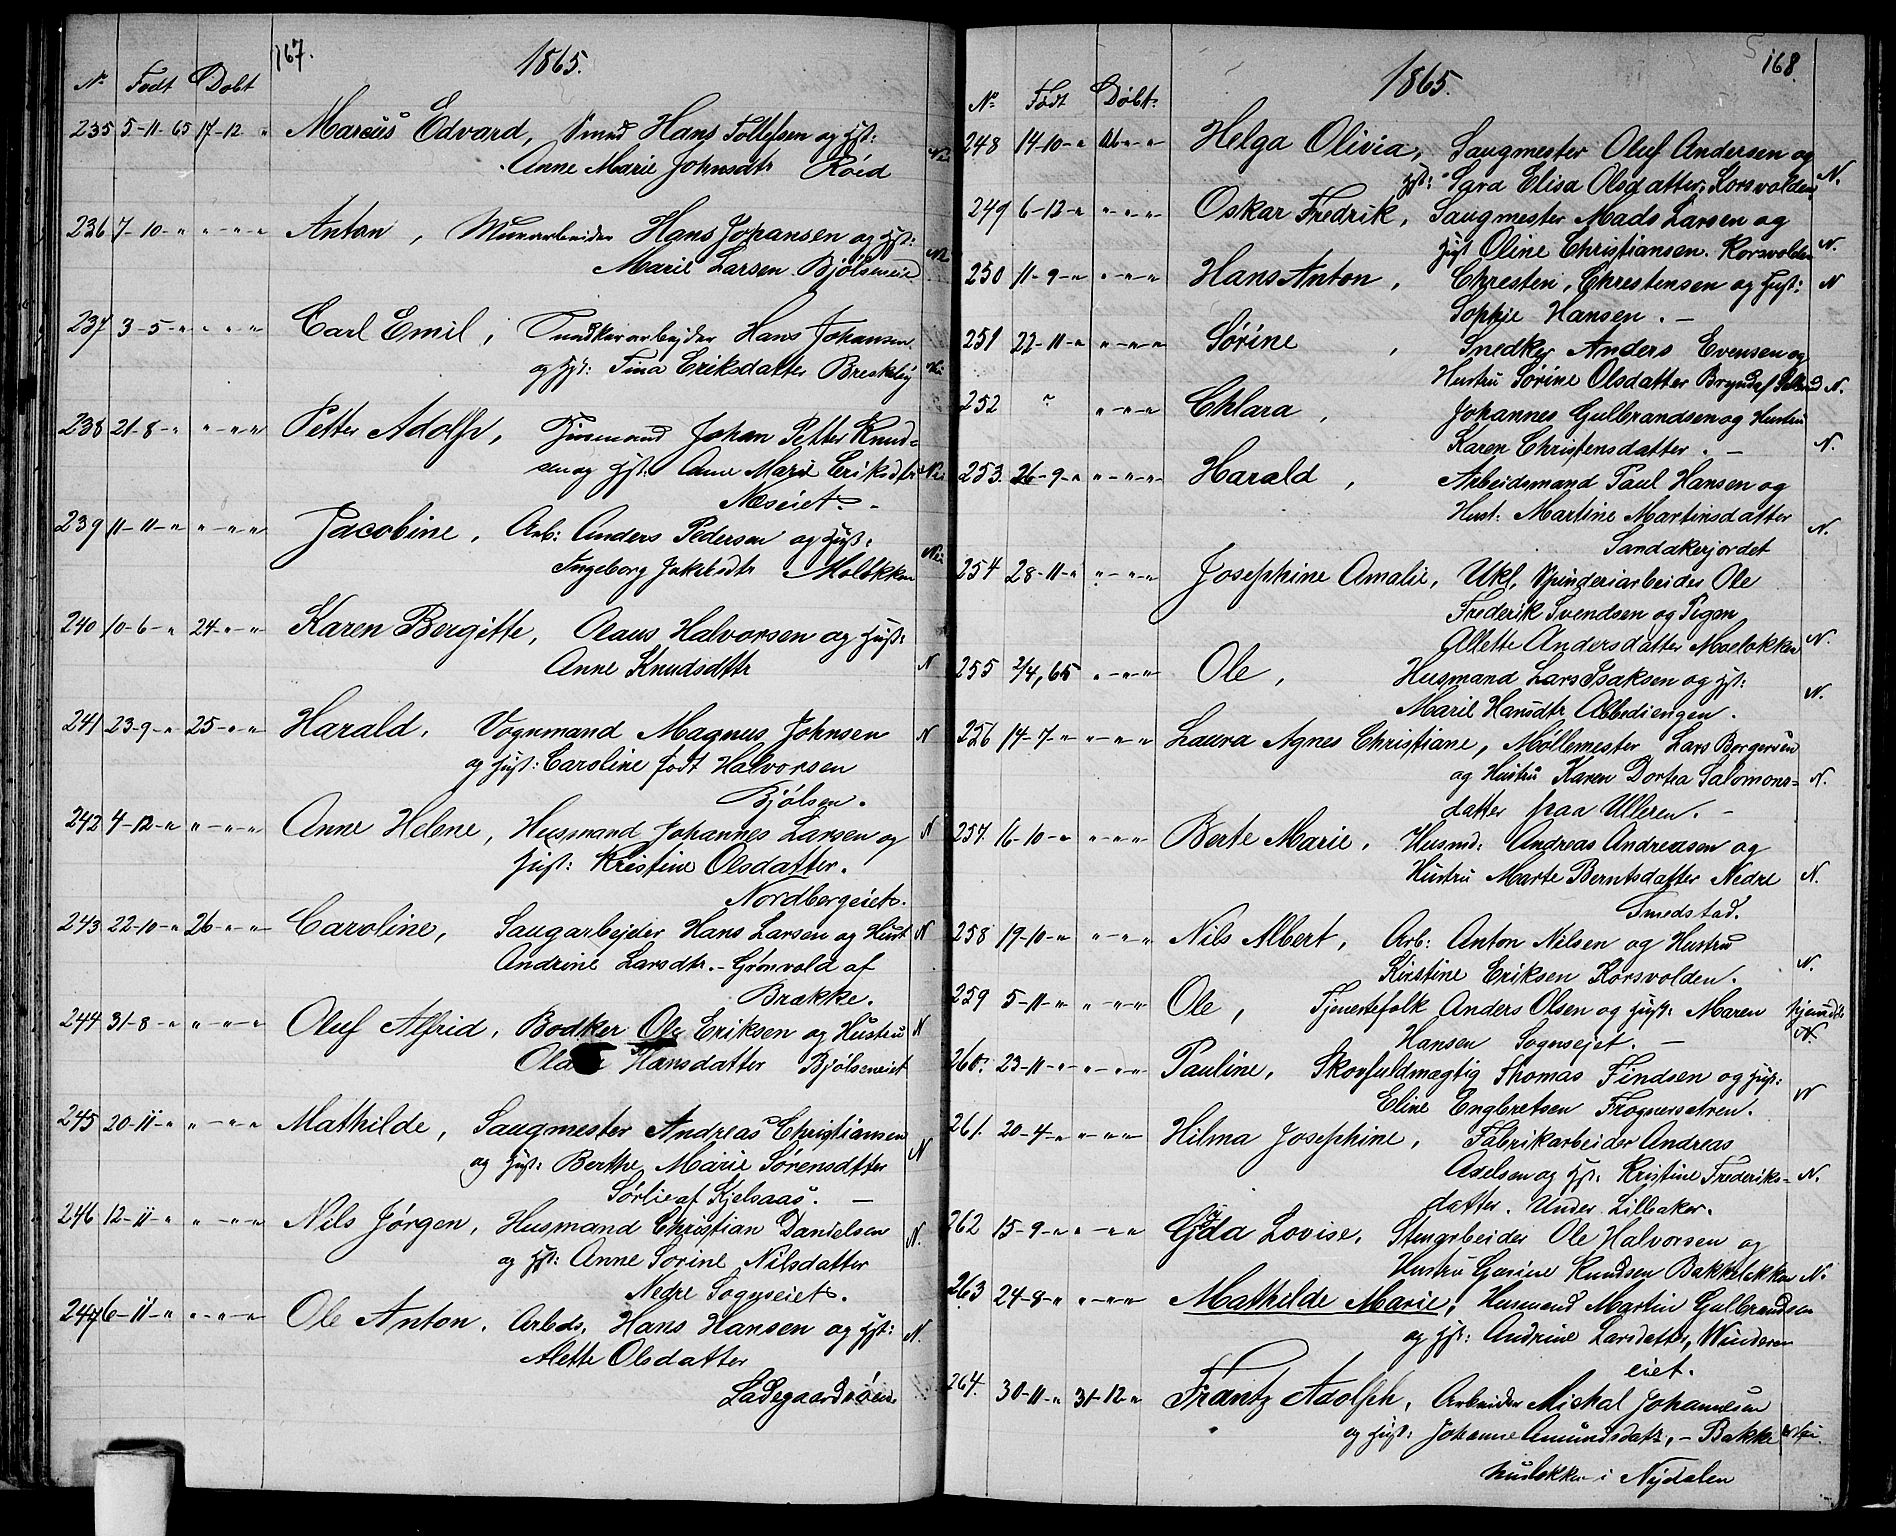 167. 1865.
No Født Døbt
235 5-11-65 17-12 " Marcus Edvard, Smed Hans Tollefsen og Hst:
Anne Marie Johnsdtr Røed
236 7-10-" "-"-" Anton, Murarbeider Hans Johansen og Hst: N
Marie Larsen Bjølseneie
237 3-5-" "-"-" Carl Emil, Hans Johansen
og Hst: Tina Eriksdatter Breskeby
238 21-8-" "-"-" Petter Adolf, Johan Petter Knud-
sen og Hst. Anne Marie Eriksdtr
Næseiet. -
239 11-11-" "-"-" Jacobine, Arb: Anders Pedersen og Hust:
Ingeborg
240 10-6-" 24-"-" Karen Bergitte, Olaus Halvorsen og Hust:
Anne Knudsdttr N
241 23-9-" 25-"-" Harald, Vognmand Magnus Johnsen N
og Hust: Caroline født Halvorsen
Bjølsen.
242 4-12-" "-"-" Anne Helene, Husmand Johannes Larsen og N
Hust: Kristine Olsdatter.
Nordbergeiet.
243 22-10-" 26-"-" Caroline, Saugarbejder Hans Larsen og Hust N
Andrine Larsdtr. - Grønvold af
Brække.
244 31-8-" "-"-" Oluf Alfrid, Bodker Ole Eriksen og Hustru N
Hansdatter Bjølseneiet
245 20-11-" "-"-" Mathilde, Saugmester Andreas Christiansen
og Hust: Berthe Marie Sørensdtter N
Sørlie af Kjelsaas. -
246 12-11-" "-"-" Nils Jørgen, Husmand Christian Danielsen
og Hst: Anne Sorine Nilsdatter N.
Nedre Sognseiet.
247 6-11-" "-"-" Ole Anton. Arbds. Hans Hansen og Hst: N.
Alette Olsdatter
Ladegaardsøen
168.
1865.
No Født Døbt
248 14-10-" 26-"-" Helga Olivia, Saugmester Oluf Andersen og
Hst: Sara Elisa Olsdatter, Korsvolden N.
249 6-12-" "-"-" Oskar Fredrik, Saugmester Mads Larsen og
Hust Oline Christiansen. Korsvolden N.
250 11-9-" "-"-" Hans Anton, Chresten, Chrestensen og Hust: N
Sophie Hansen. -
251 22-11-" "-"-" Sørine, Snedker Anders Evensen og
Hustru Sørine Olsdatter N.
252 " "-"-" Chlara, Johannes Gulbrandsen og Hustru
Karen Christensdatter. - N.
253. 26-9-" "-"-" Harald, Arbeidsmand Paul Hansen og
Hust: Martine Martinsdatter
Sandakerjordet N.
254 28-11-" "-"-" Josephine Amalie, Ukl, Spinderiarbeider Ole
Frederik Svendsen og Pigen
Allette Andersdatter Moeløkken N.
255 2/4, 65 "-"-" Ole, Husmand Lars Isaksen og Hst:
Marie Hansdtr Abbediengen. N.
256 14-7-" "-"-" Laura Agnes Christiane, Møllemester Lars Borgersen
og Hustru Karen Dortea Salomons- N.
datter paa Ulleren. -
257. 16-10-" "-"-" Berte Marie. Husmd: Andreas Andreasen og
Hustru Marte Berntsdatter Nedre N.
Smedstad.
258 19-10-" "-"-" Nils Albert, Arb: Anton Nilsen og Hustru
Kirstine Eriksen Korsvolden. N.
259 5-11-" "-"-" Ole, Tjenestefolk Anders Olsen og Hust: Maren
Hansen Sognsejet. - N.
260. 23-11-" "-"-" Pauline, Skovfuldmægtig Thomas Findsen og Hust:
Eline Engbretsen Frognersætren. N
261. 20-4-" "-"-" Hilma Josephine, Fabrikarbeider Andreas
Axelsen og Hst: Kristine Frederiks- N.
datter. Under Lilleaker.
262 15-9-" "-"-" Gjda Lovise, Stenarbeider Ole Halvorsen og
Hustru Gusine Knudsen Bakkeløkken N.
263 24-8-" "-"-" Mathilde Marie, Husmand Martin Gulbrandsen
og Hst: Andrine Larsdatter, Winderen
eiet.
264. 30-11-" 31-12-" Frantz Adolph, Arbeider Mickal Johannesen
og Hust: Johanne Amundsdatr, - Bakke
husløkken i Nydalen